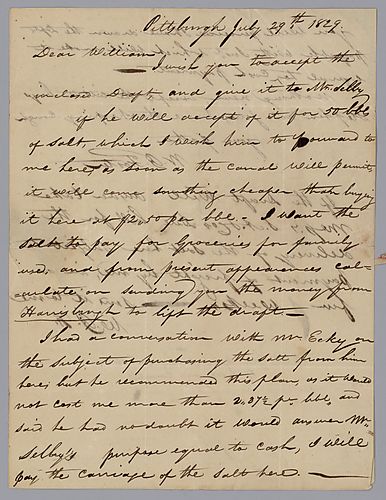 Pittsburgh July 29th 1829.
Dear William
I wish you to accept the
inclosed Draft and give it to Mr. Selby
if he will accept of it for 50 bbls
of Salt, which I wish him to forward to
me here, as soon as the canal will permit,
it will come somthing cheaper than buying
it here at $2,50 per bbl - I want the
Salt to pay for groceries for family
use, and from present appearances cal-
culate on sending you the money from
Harrisburgh to lift the draft -
I had a conversation with Mr Ecky on
the subject of purchasing the salt from him
here; but he recommended this plan, as it would
not cost me more than 2,37½ pr. bbl, and
said he had no doubt it would answer Mr
Selby's purpose equal to cash, I will
pay the carriage of the Salt here. -